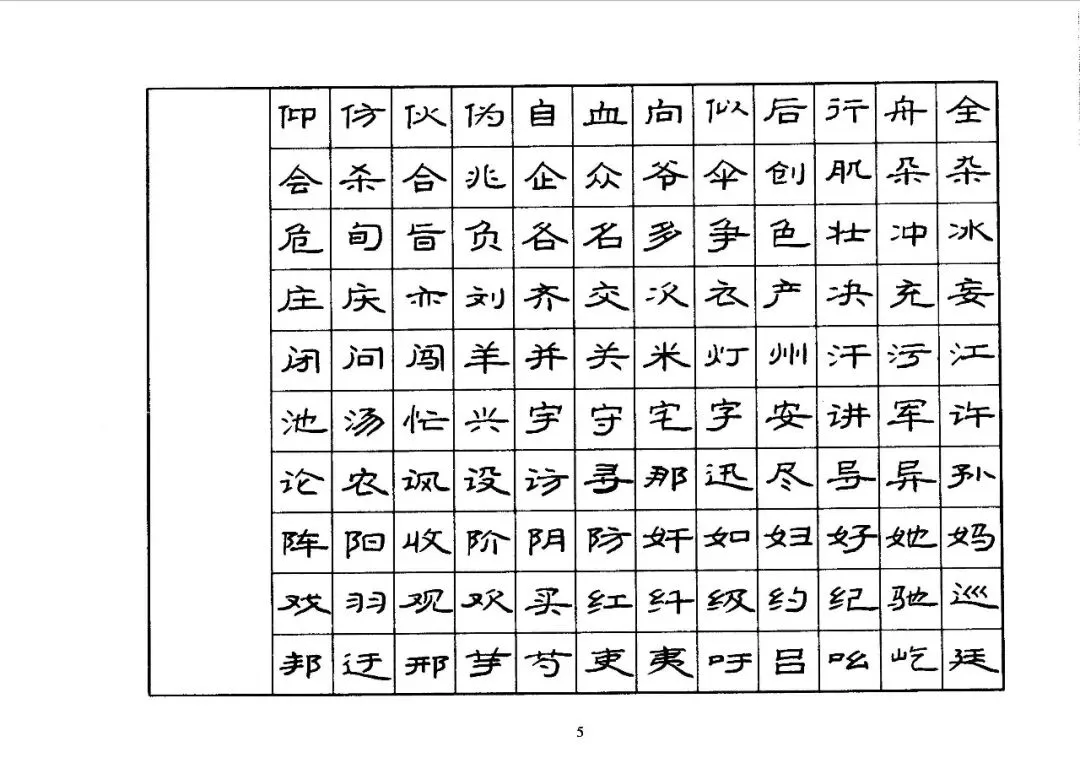 仰仿伙伪自血向似后行舟全
会杀合兆企众爷伞创肌朵杂
危旬旨负各名多争色壮冲冰
庄庆亦刘齐交次衣产决充妄
闭问闯羊并关米灯州汗污江
池汤忙兴宇守宅字安讲军许
论农讽设访寻那迅尽导异孙
阵阳收阶阴防奸如妇好她妈
戏羽观欢买红纤级约纪驰巡
邦迂邢芋芍吏夷吁吕吆屹廷
5